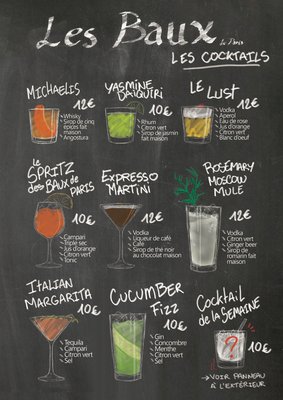 Les Baux
de Paris
LES COCKTAILS
MICHAELIS
12€
Whisky
Sirop de cinq
épices fait
maison
Angostura
YASMINE
DAIQUIRI
10€
Rhum
Citron vert
Sirop de jasmin
fait maison
LE
LUST
12€
Vodka
Aperol
Eau de rose
Jus d'orange
Citron vert
Blanc d'oeuf
le
SPRITZ
des BAUX de
PARIS
10€
Campari
Triple sec
Jus d'orange
Citron vert
Tonic
EXPRESSO
MARTINI
12€
Vodka
Liqueur de café
Café
Sirop de thé noir
au chocolat maison
ROSEMARY
MOSCOW
MULE
12€
Vodka
Citron vert
Ginger beer
Sirop de
romarin fait
maison
ITALIAN
MARGARITA
10€
Tequila
Campari
Citron vert
Sel
CUCUMBER
FIZZ
10€
Gin
Concombre
Menthe
Citron vert
Sel
Cocktail
de la SEMAINE
10€
?
→ VOIR PANNEAU
À L'EXTÉRIEUR